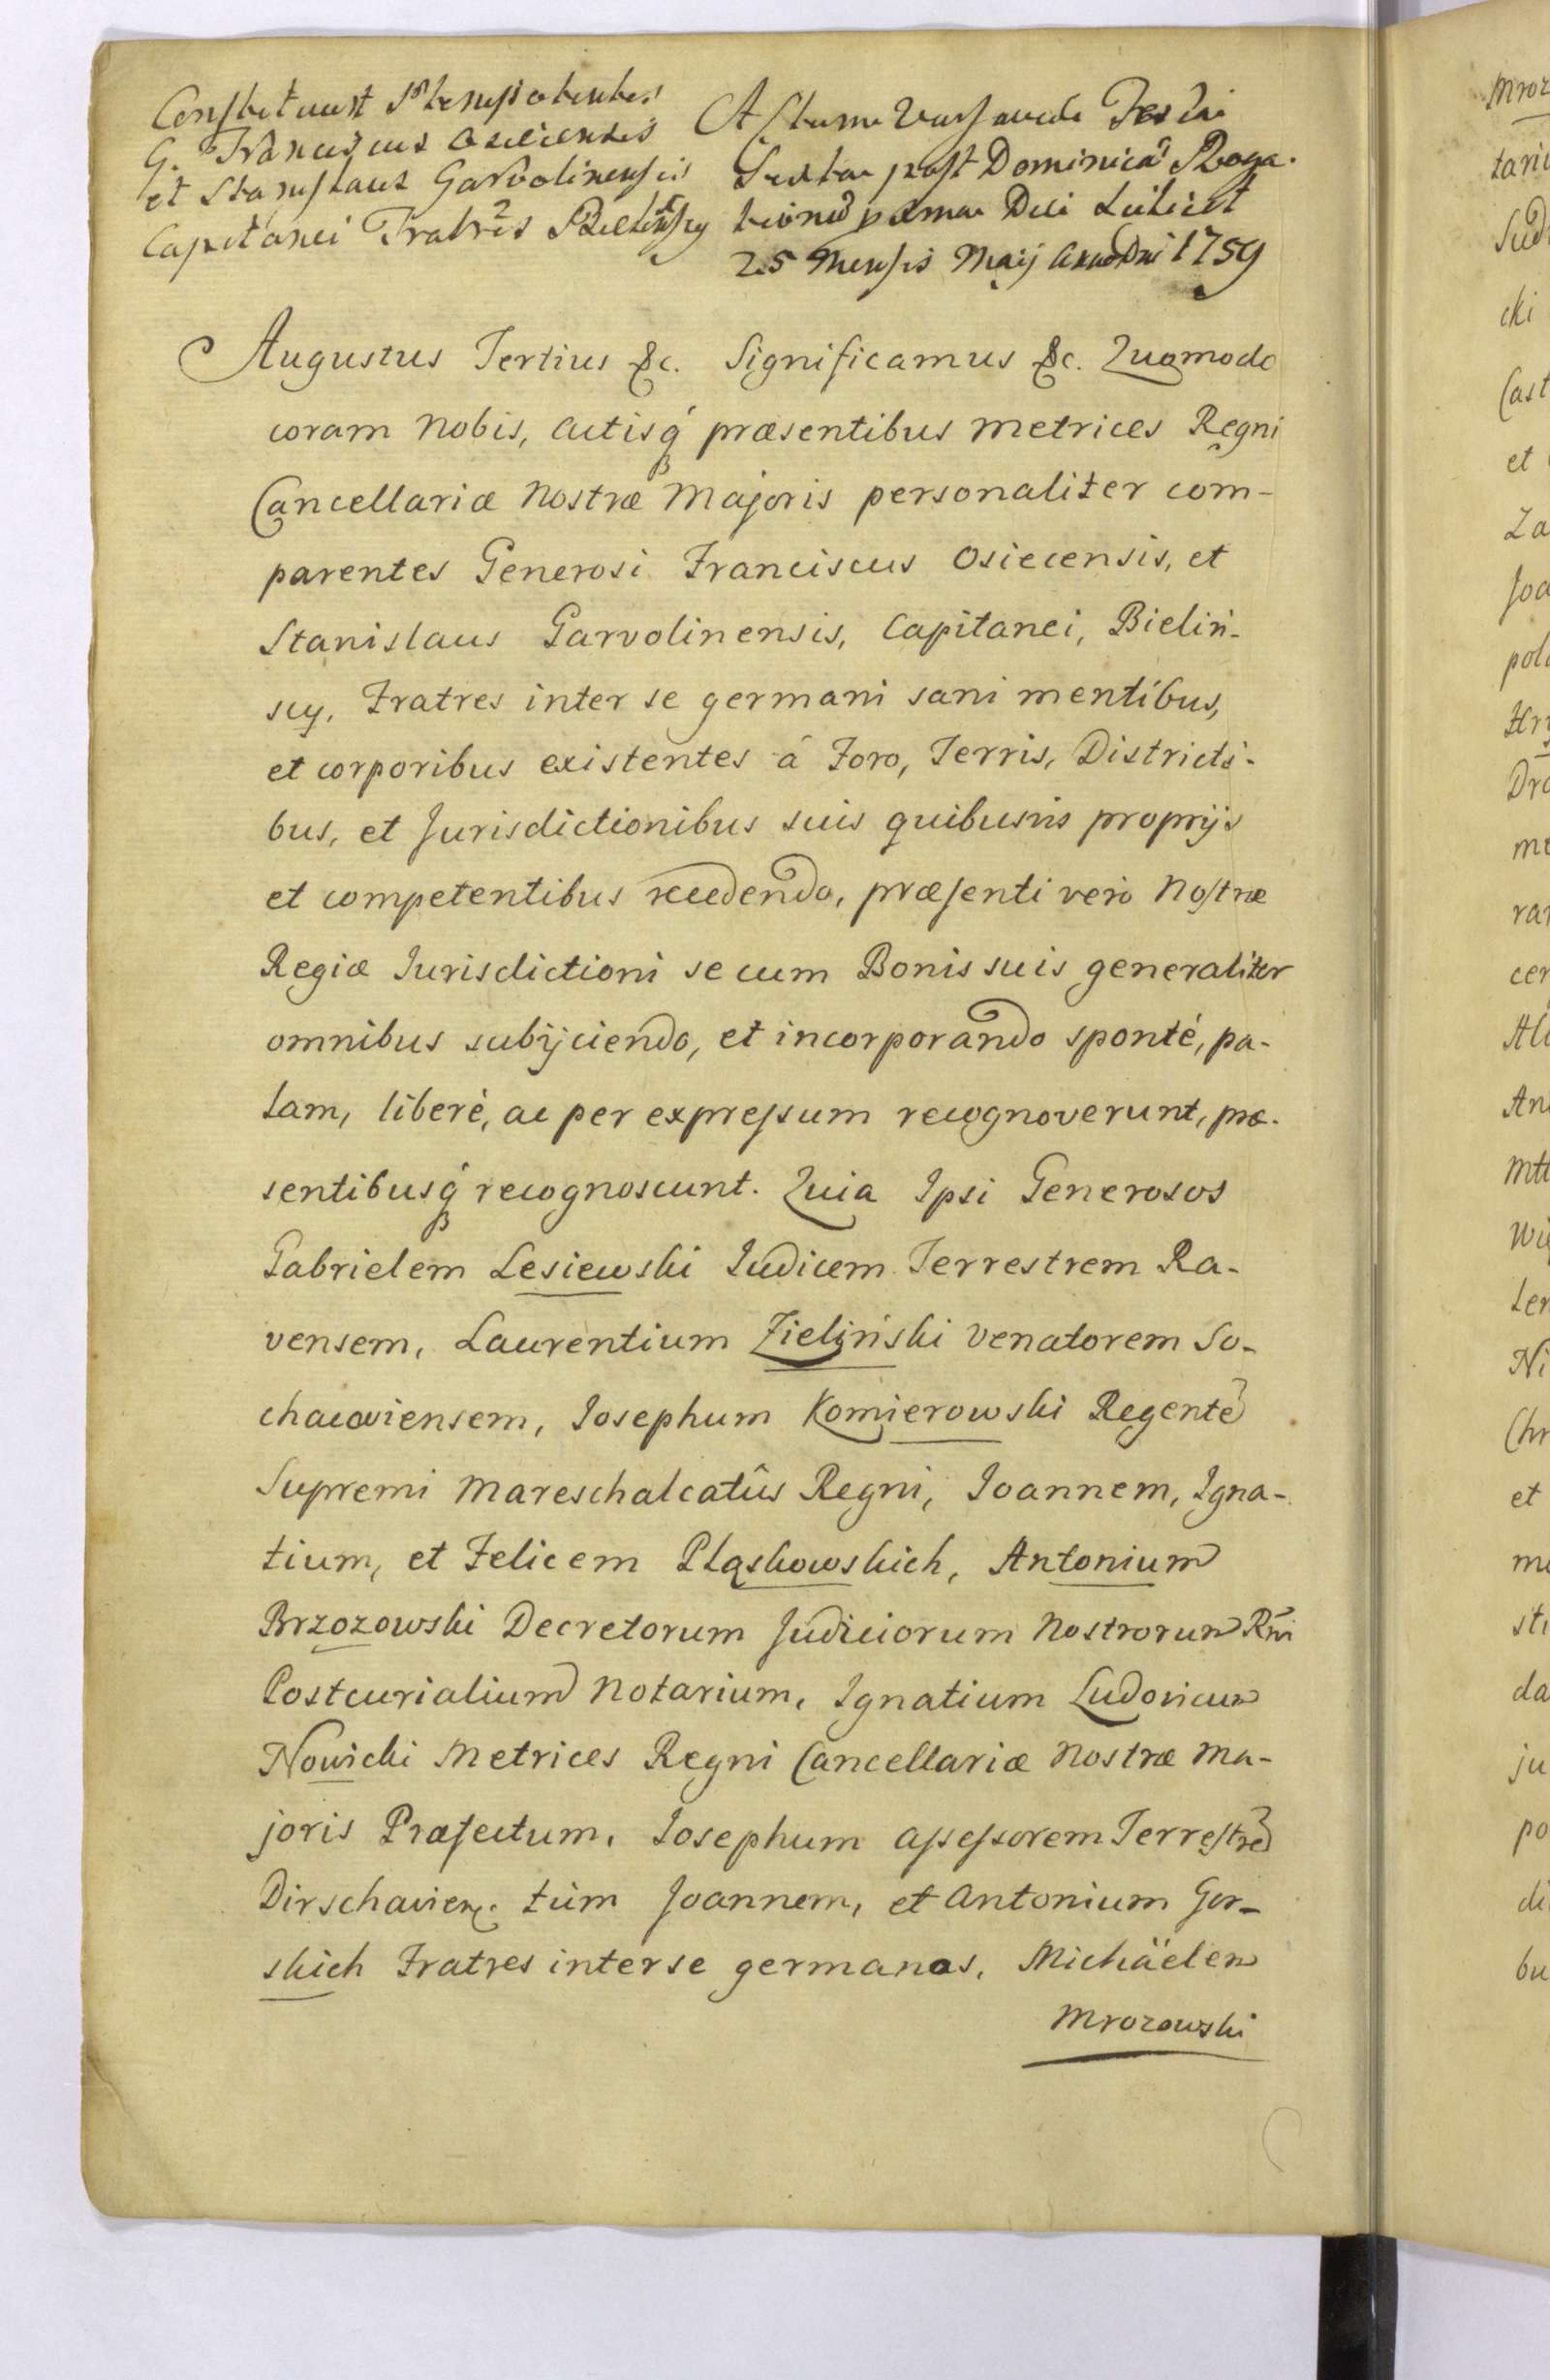 Constituunt Plenipotentes
G. Franciscus Osiecensis
et Stanislaus Garvolinensis
Capitanei Fratres Bielińscy
Actum Varsaviae Feria
Sexta post Dominicā Roga-
tionū proxima Die Scilicet
25 Mensis Maij Anno Dni 1759
Augustus Tertius &c. Significamus &c. Quomodo
coram Nobis, Actisq́ præsentibus Metrices Regni
Cancellariæ Nostræ Majoris personaliter com-
parentes Generosi Franciscus Osiecensis, et
Stanislaus Garvolinensis, Capitanei, Bieliń-
scy, Fratres inter se germani sani mentibus,
et corporibus existentes â Foro, Terris, Districti-
bus, et Jurisdictionibus suis quibusvis proprijs
et competentibus recedendo, præsenti verò Nostræ
Regiæ Jurisdictioni se cum Bonis suis generaliter
omnibus subijciendo, et incorporando spontè, pa-
lam, liberè, ac per expressum recognoverunt, præ-
sentibusq́ recognoscunt. Quia Ipsi Generosos
Gabrielem Lesiewski Judicem Terrestrem Ra-
vensem, Laurentium Zieliński Venatorem So-
chacoviensem, Josephum Komierowski Regentē
Supremi Mareschalcatûs Regni, Joannem, Igna-
tium, et Felicem Pląskowskich, Antonium
Brzozowski Decretorum Judiciorum Nostrorum Rni
Postcurialium Notarium, Ignatium Ludovicum
Nowicki Metrices Regni Cancellariæ Nostræ Ma-
joris Præfectum, Josephum Assessorem Terrestrē
Dirschavien. tùm Joannem, et Antonium Gor-
skich Fratres inter se germanos, Michäelem
Mrozowski